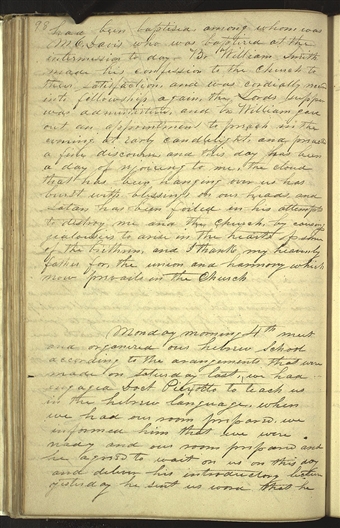 98
have been baptised among whom was
M. C. Davis who was baptised at the
intermission to day. Br William Smith
made his confession to the Church to
their satisfaction and was cordially received
into fellowship again the Lords supper
was administered, and Br William gave
out an appointment to preach in the
evening at early candlelight, and preached
a fine discourse and this day has been
a day of rejoicing to me, the cloud
that has been hanging over us has
burst with blessings on our heads and
Satan has been foiled in his attempts
to destroy me and the Church, by causing
jealousies to arise in the hearts of some
of the brethren, and I thank my heavenly
father for the union and harmony which
now prevails in the Church
Monday morning 4th meet
and organized our hebrew School
according to the arangements that were
made on saturday last, we had
engaged Doct Piexotto to teach us
in the hebrew language, when
we had our room prepared. we
informed him that we were
ready and our room prepared and
he agreed to wait on us on this day
and deliver his introductory lecture
yesterday he sent us word that he